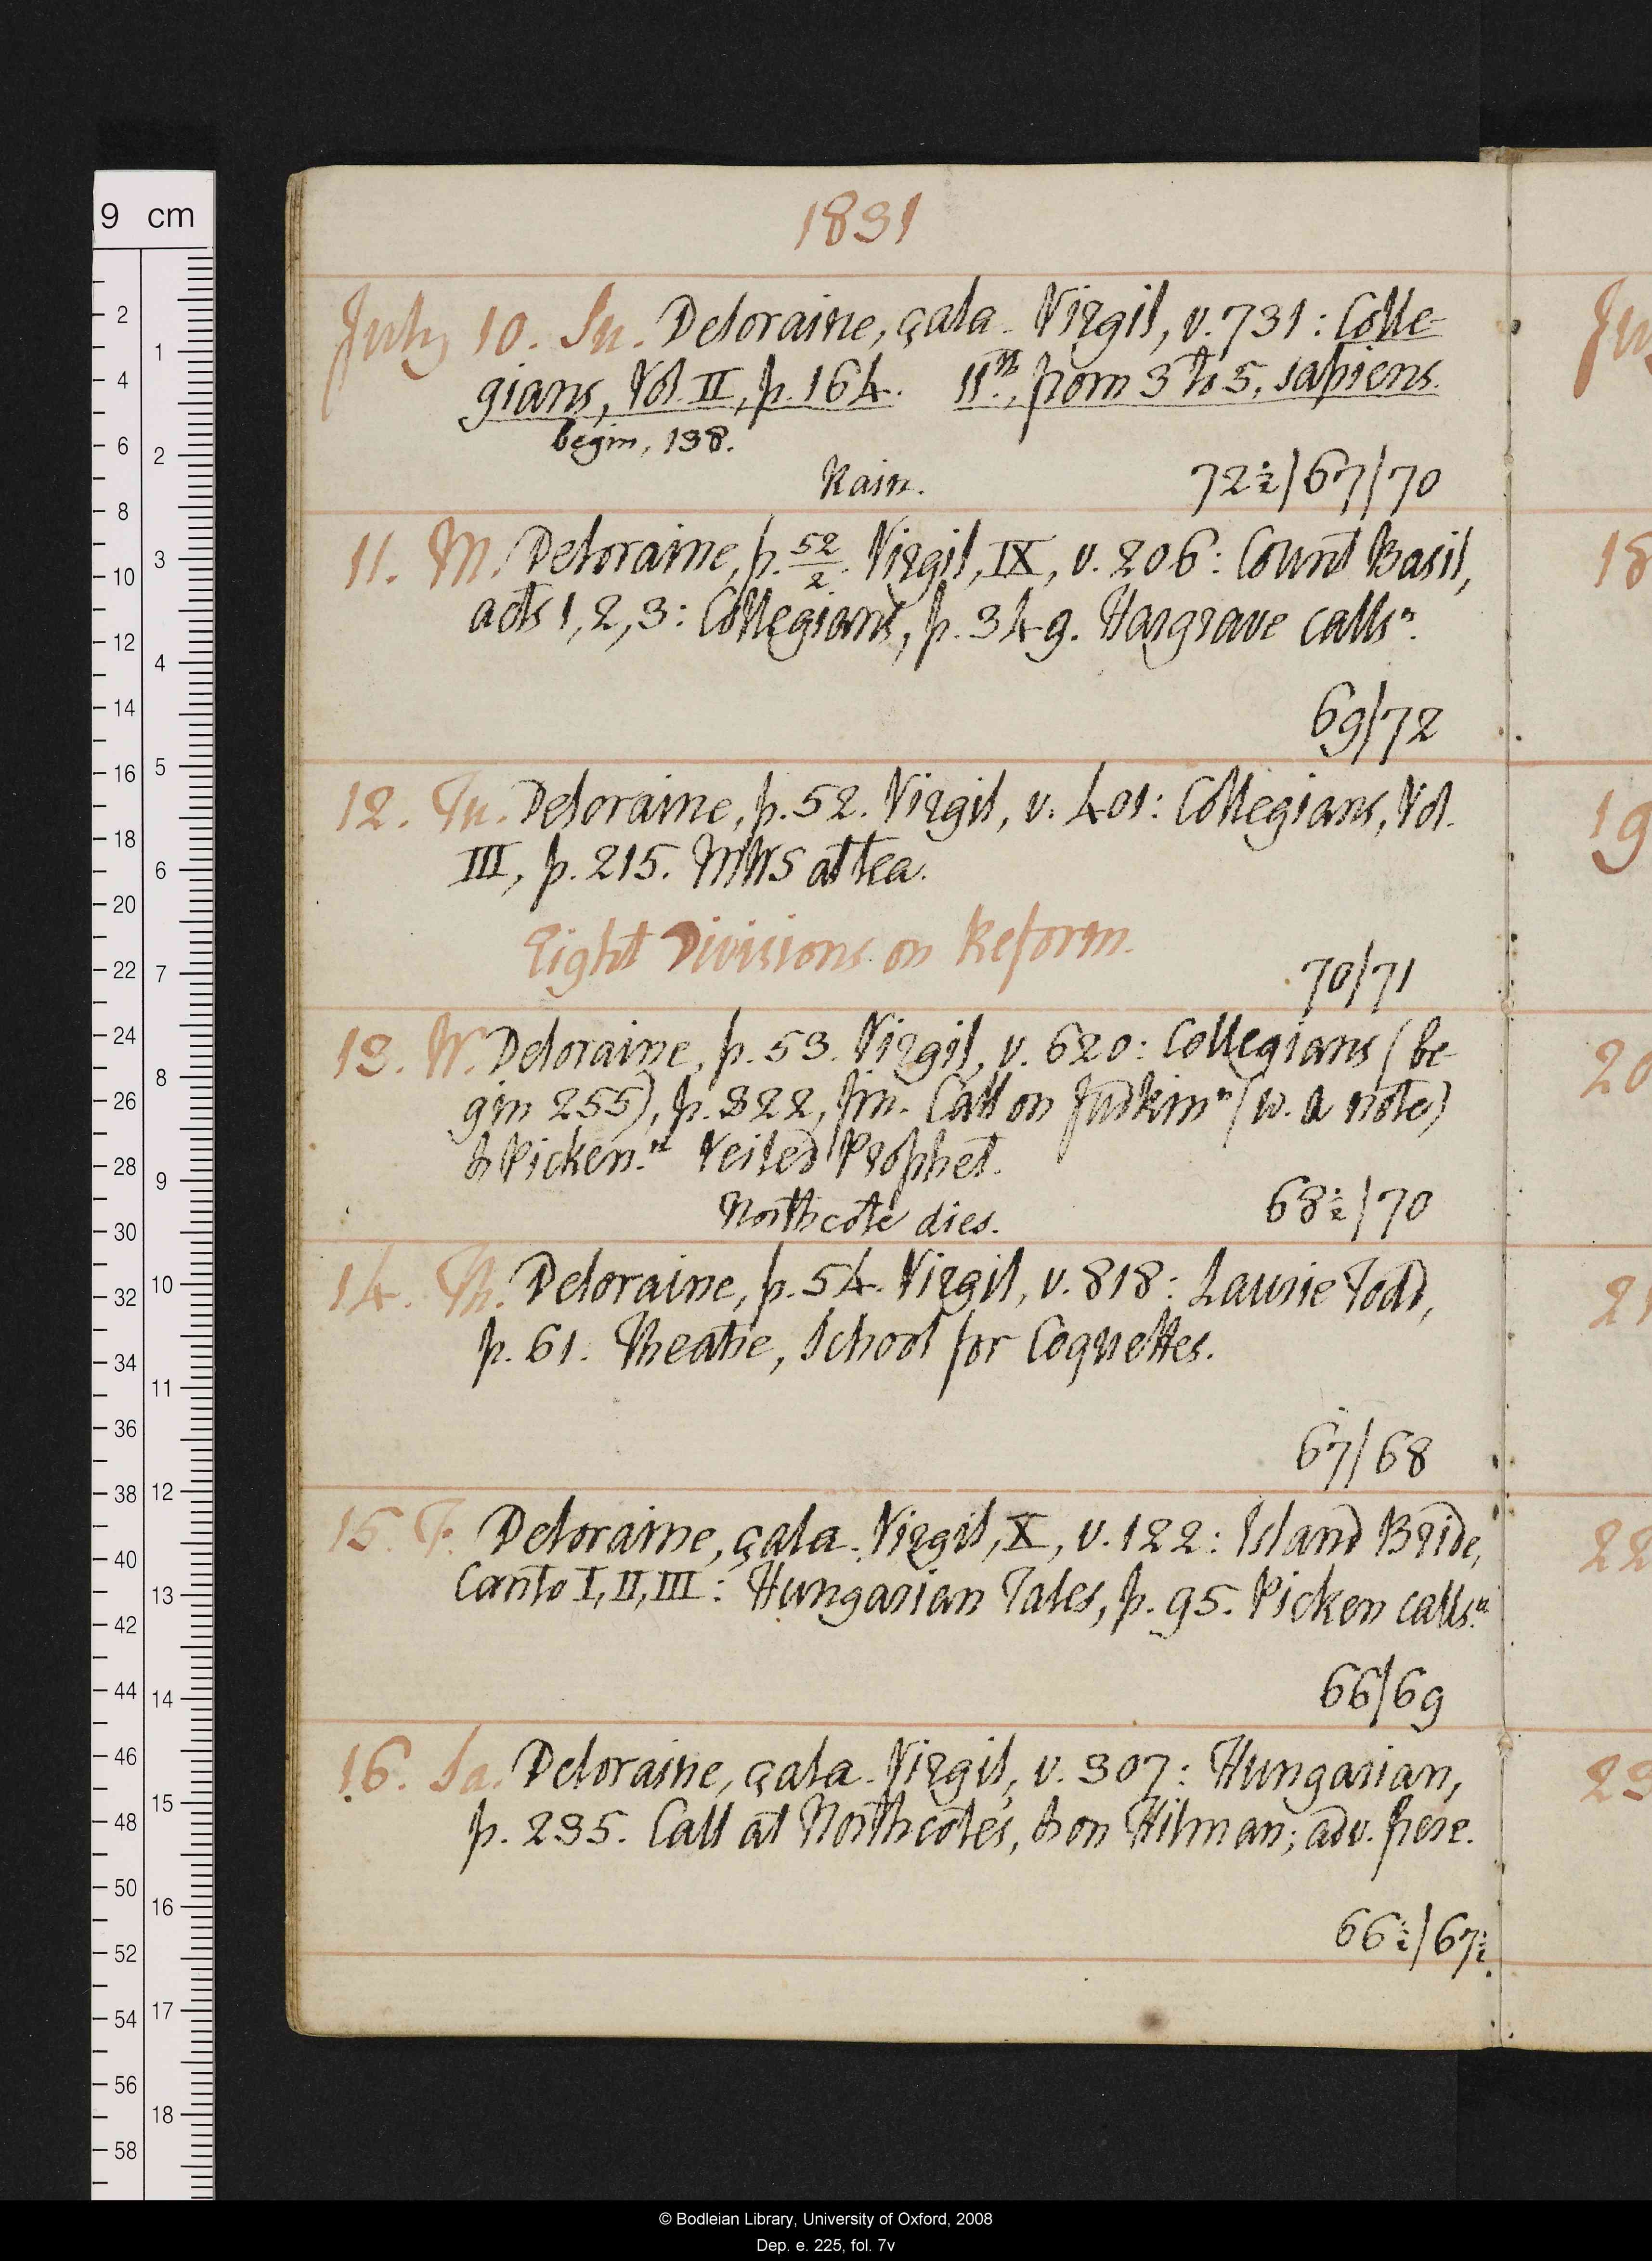 1831
July 10. Su. Deloraine, çala. Virgil, v. 731: Colle-
gians, Vol. II, p. 164. 11m., from 3 to 5, sapiens.
begin, 138.
Rain. 72½/67/70
11. M. Deloraine, p. 52/2. Virgil, IX, v. 206: Count Basil,
acts 1, 2, 3: Collegians, p. 349. Hargrave callsn.
69/72
12. Tu. Deloraine, p. 52. Virgil, v. 401: Collegians, Vol.
III, p. 215. MWS at tea.
Eight Divisions on Reform.
70/71
13. W. Deloraine, p. 53. Virgil, v. 620: Collegians (be-
gin 255), p. 322, fin. Call on Judkinn (w. a note)
& Picken.n Veiled Prophet.
Northcote dies. 68½/70
14. Th. Deloraine, p. 54. Virgil, v. 818: Lawrie Todd,
p. 61. Theatre, School for Coquettes.
67/68
15. F. Deloraine, çala. Virgil, X, v. 122: Island Bride,
Canto I, II, III: Hungarian Tales, p. 95. Picken calls.n
66/69
16. Sa. Deloraine, çala. Virgil, v. 307: Hungarian,
p. 235. Call at Northcote's, & on Hilman; adv. Frere.
66½/67½
9 cm
2
4
6
8
10
12
14
16
18
20
22
24
26
28
30
32
34
36
38
40
42
44
46
48
50
52
54
56
58
1
2
3
4
5
6
7
8
9
10
11
12
13
14
15
16
17
18
18
19
20
21
22
23
© Bodleian Library, University of Oxford, 2008
Dep. e. 225, fol. 7v